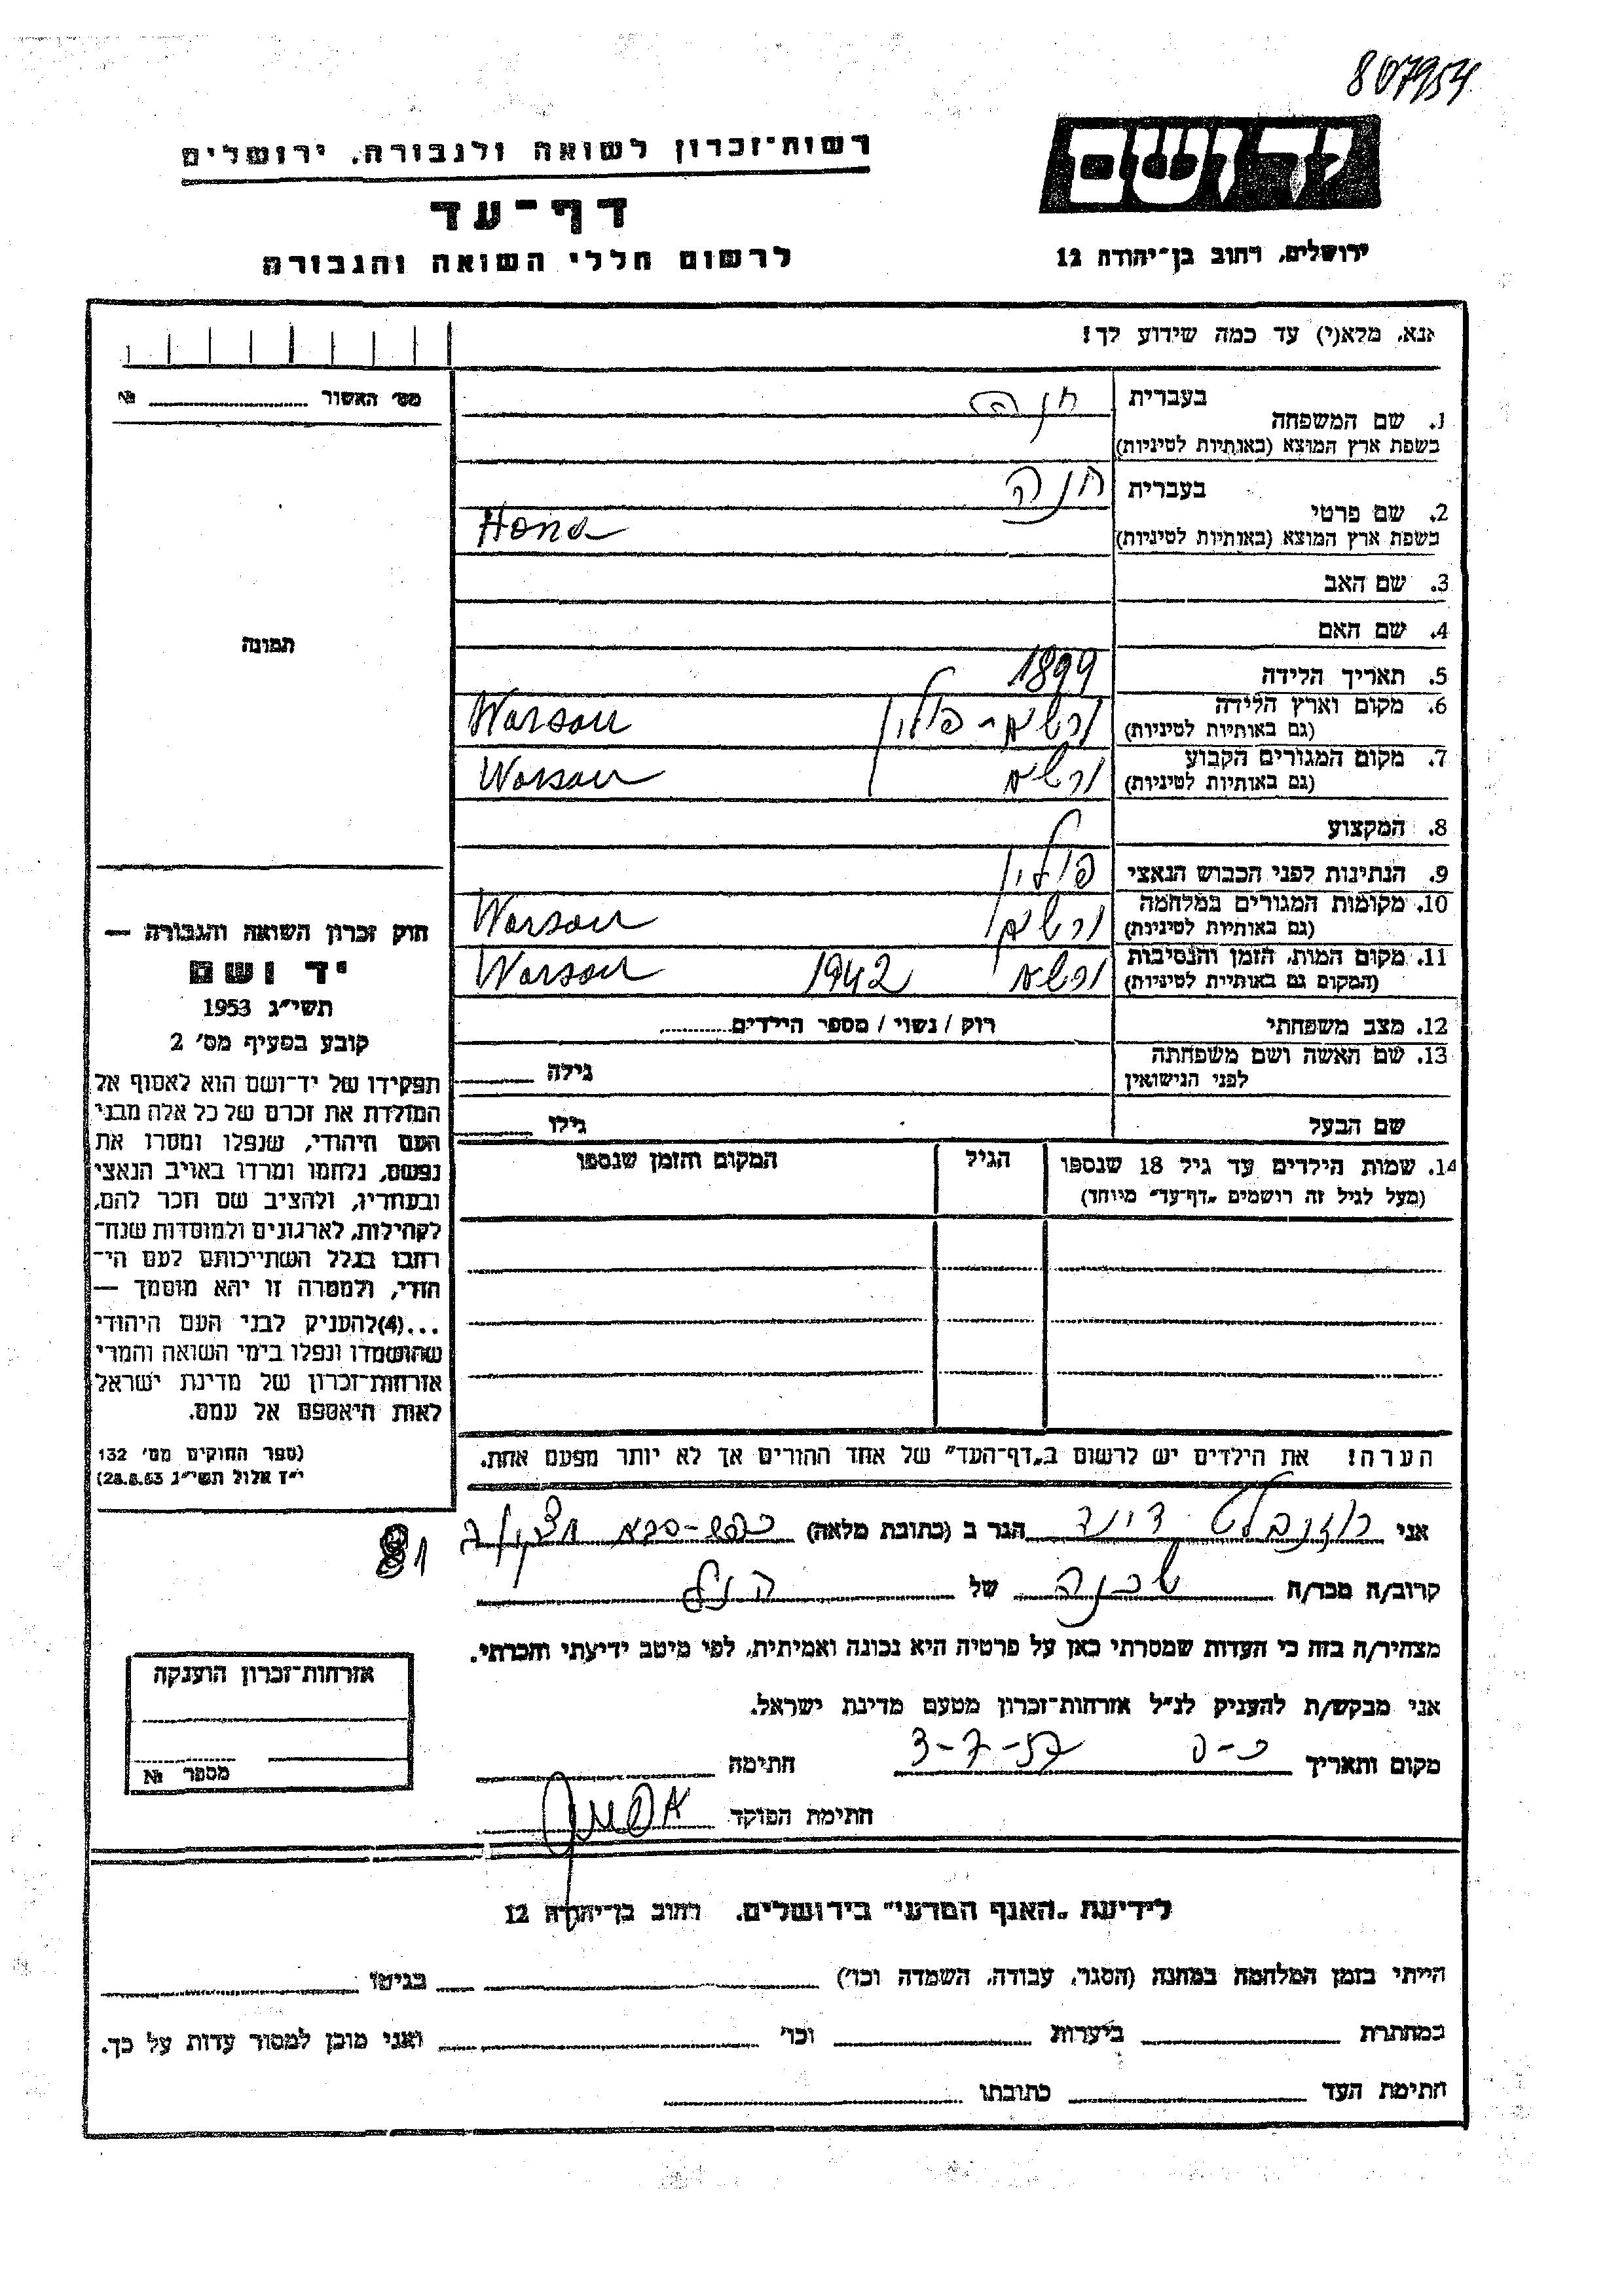 807954
יד ושם
רשות-זכרון לשואה ולגבורה, ירושלים
דף-עד
לרשום חללי השואה והגבורה
ירושלים, רחוב בן-יהודה 12
אנא, מלא(י) עד כמה שידוע לך!
מס' האשור № 
1. שם המשפחה
בעברית חנה
בשפת ארץ המוצא (באותיות לטיניות)
2. שם פרטי
בעברית חנה
בשפת ארץ המוצא (באותיות לטיניות) Hana
3. שם האב
4. שם האם
תמונה
5. תאריך הלידה 1899
6. מקום וארץ הלידה ורשה - פולין Warsau
(גם באותיות לטיניות)
7. מקום המגורים הקבוע ורשא Warsau
(גם באותיות לטיניות)
8. המקצוע
9. הנתינות לפני הכבוש הנאצי פולין
10. מקומות המגורים במלחמה ורשה Warsau
(גם באותיות לטיניות)
11. מקום המות, הזמן והנסיבות ורשא 1942 Warsau
(המקום גם באותיית לטיניות)
12. מצב משפחתי רוק / נשוי / מספר הילדים
13. שם האשה ושם משפחתה
לפני הנישואין גילה
שם הבעל גילו
14. שמות הילדים עד גיל 18 שנספו
(מעל לגיל זה רושמים „דף-עד" מיוחד)
הגיל
המקום והזמן שנספו
חוק זכרון השואה והגבורה —
יד ושם
תשי"ג 1953
קובע בסעיף מס' 2
תפקידו של יד-ושם הוא לאסוף אל
המולדת את זכרם של כל אלה מבני
העם היהודי, שנפלו ומסרו את
נפשם, נלחמו ומרדו באויב הנאצי
ובעוזריו, ולהציב שם וזכר להם,
לקהילות, לארגונים ולמוסדות שנח-
רחבו בגלל השתייכותם לעם הי-
הודי, ולמטרה זו יהא מוסמך —
...(4)להעניק לבני העם היהודי
שהושמדו ונפלו בימי השואה והמרי
אזרחות-זכרון של מדינת ישראל
לאות היאספם אל עמם.
(ספר החוקים מס' 132
י"ז אלול תשי"ג 28.8.53)
הערה! את הילדים יש לרשום ב„דף-העד" של אחד ההורים אך לא יותר מפעם אחת.
אני רוזנבלט דוד הגר ב (כתובת מלאה) כפר-סבא
81
קרוב/ה מכר/ה שכנה של
מצהיר/ה בזה כי העדות שמסרתי כאן על פרטיה היא נכונה ואמיתית, לפי מיטב ידיעתי והכרתי.
אני מבקש/ת להעניק לנ"ל אזרחות-זכרון מטעם מדינת ישראל.
מקום ותאריך כ-ס 3-7-57 חתימה
חתימת הפוקד
אזרחות-זכרון הוענקה
מספר №
לידיעת „האגף המדעי" בירושלים, רחוב בן-יהודה 12
הייתי בזמן המלחמה במחנה (הסגר, עבודה, השמדה וכו') בגיטו
במחתרת ביערות וכו' ואני מוכן למסור עדות על כך.
חתימת העד כתובתו